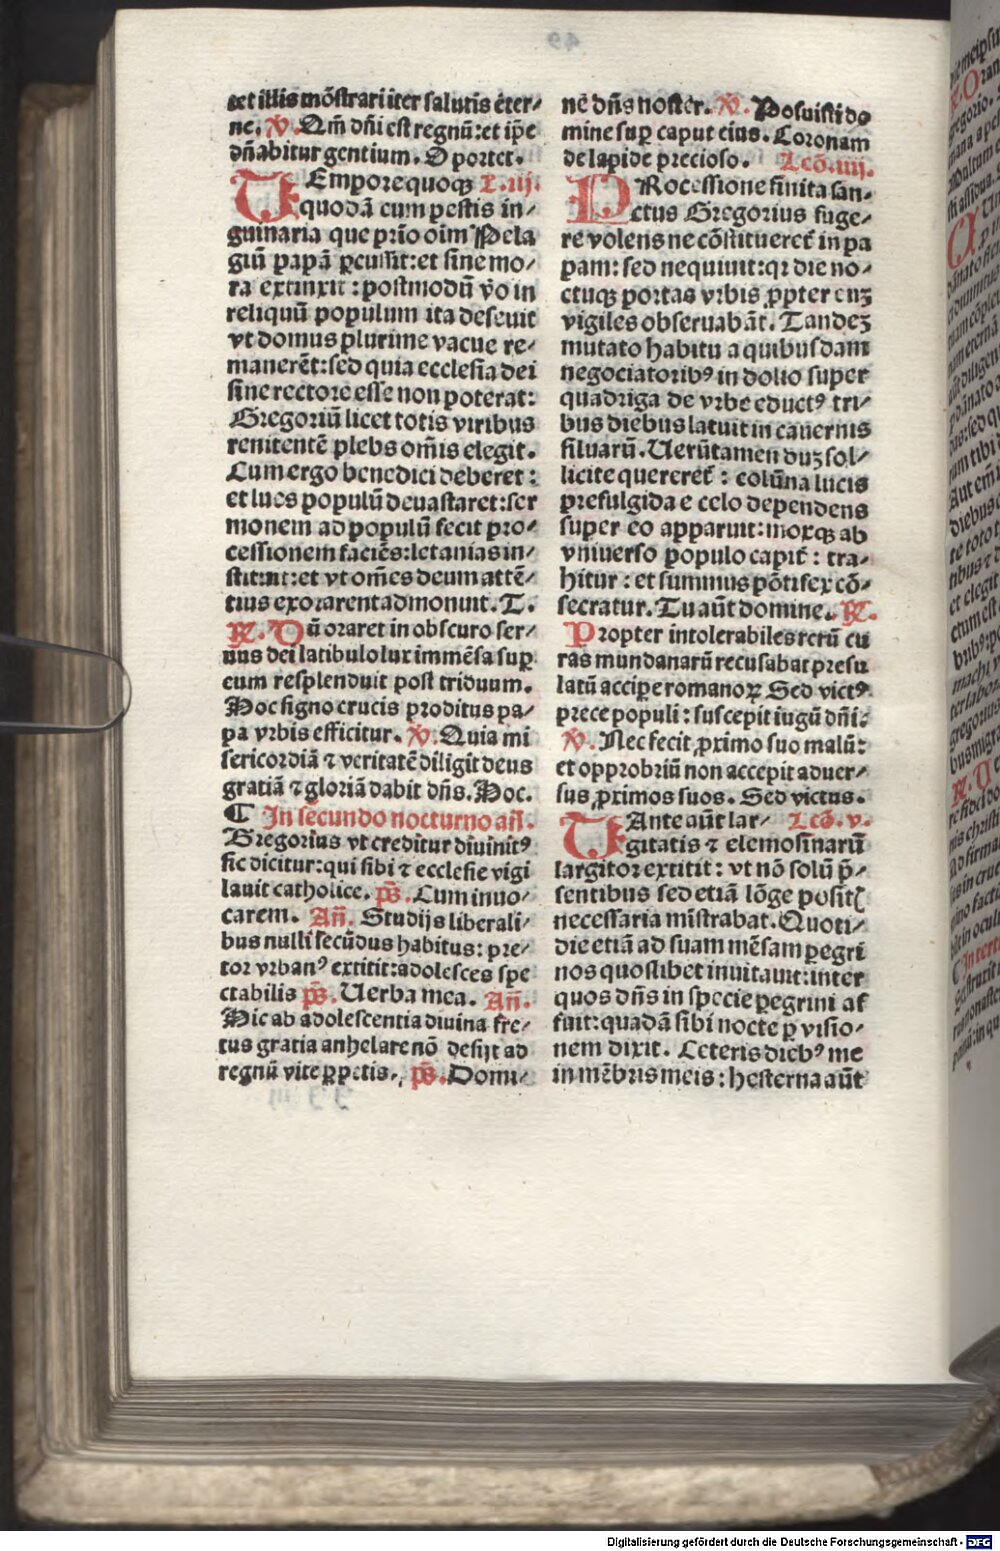 tet illis mōstrari iter salutis eter⸗
ne. ℣. Qm̄ dn̄i est regnū: et ip̄e
dn̄abitur gentium. Oportet.
TEmpore quoqꝫ L. iij.
quodā cum pestis in⸗
guinaria que pr̄io oīm Pela
giū papā ꝑcussit: et sine mo⸗
ra extinxit: postmodū vo in
reliquū populum ita deseuit
vt domus plurime vacue re⸗
manerēt: sed quia ecclesia dei
sine rectore esse non poterat:
Gregoriū licet totis viribus
renitentē plebs om̄is elegit.
Cum ergo benedici deberet:
et lues populū deuastaret: ser
monem ad populū fecit pro⸗
cessionem faciēs: letanias in⸗
stituit: et vt om̄es deum attē⸗
tius exorarent admonuit. T.
℞. Dū oraret in obscuro ser⸗
uus dei latibulo lux immēsa suꝑ
eum resplenduit post triduum.
Hoc signo crucis proditus pa⸗
pa vrbis efficitur. ℣. Quia mi
sericordiā ⁊ veritatē diligit deus
gratiā ⁊ gloriā dabit dn̄s. Hoc.
¶ In secundo nocturno an̄.
Gregorius vt creditur diuinitꝰ
sic dicitur: qui sibi ⁊ ecclesie vigi
lauit catholice. ps̄. Cum inuo⸗
carem. An̄. Studijs liberali⸗
bus nulli secūdus habitus: pre⸗
tor vrbanꝰ extitit: adolesces spe
ctabilis ps̄. Uerba mea. An̄.
Hic ab adolescentia diuina fre⸗
tus gratia anhelare nō desijt ad
regnū vite ꝑpetis. ps̄. Domi⸗
ne dn̄s noster. ℣. Posuisti do
mine suꝑ caput eius. Coronam
de lapide precioso. Lcō. iiij.
PRocessione finita san⸗
ctus Gregorius fuge⸗
re volens ne cōstitueret̄ in pa
pam: sed nequiuit: qꝛ die no⸗
ctuqꝫ portas vrbis ꝓpter euꝫ
vigiles obseruabāt. Tandeꝫ
mutato habitu a quibusdam
negociatoribꝰ in dolio super
quadriga de vrbe eductꝰ tri⸗
bus diebus latuit in cauernis
siluarū. Uerūtamen duꝫ sol⸗
licite quereret̄: colūna lucis
prefulgida e celo dependens
super eo apparuit: moxqꝫ ab
vniuerso populo capit̄: tra⸗
hitur: et summus pōtifex cō⸗
secratur. Tu aūt domine. ℞.
Propter intolerabiles rerū cu
ras mundanarū recusabat presu
latū accipe romanoꝝ Sed victꝰ
prece populi: suscepit iugū dn̄i:
℣. Nec fecit ꝓximo suo malū:
et opprobriū non accepit aduer⸗
sus ꝓximos suos. Sed victus.
TAnte aūt lar⸗ Lcō. v.
gitatis ⁊ elemosinarū
largitor extitit: vt nō solū p̄⸗
sentibus sed etiā lōge positꝭ
necessaria mīstrabat. Quoti⸗
die etiā ad suam mēsam ꝑegri
nos quoslibet inuitauit: inter
quos dn̄s in specie ꝑegrini af
fuit: quadā sibi nocte ꝑ visio⸗
nem dixit. Ceteris diebꝰ me
in mēbris meis: hesterna aūt
Digitalisierung gefördert durch die Deutsche Forschungsgemeinschaft - DFG